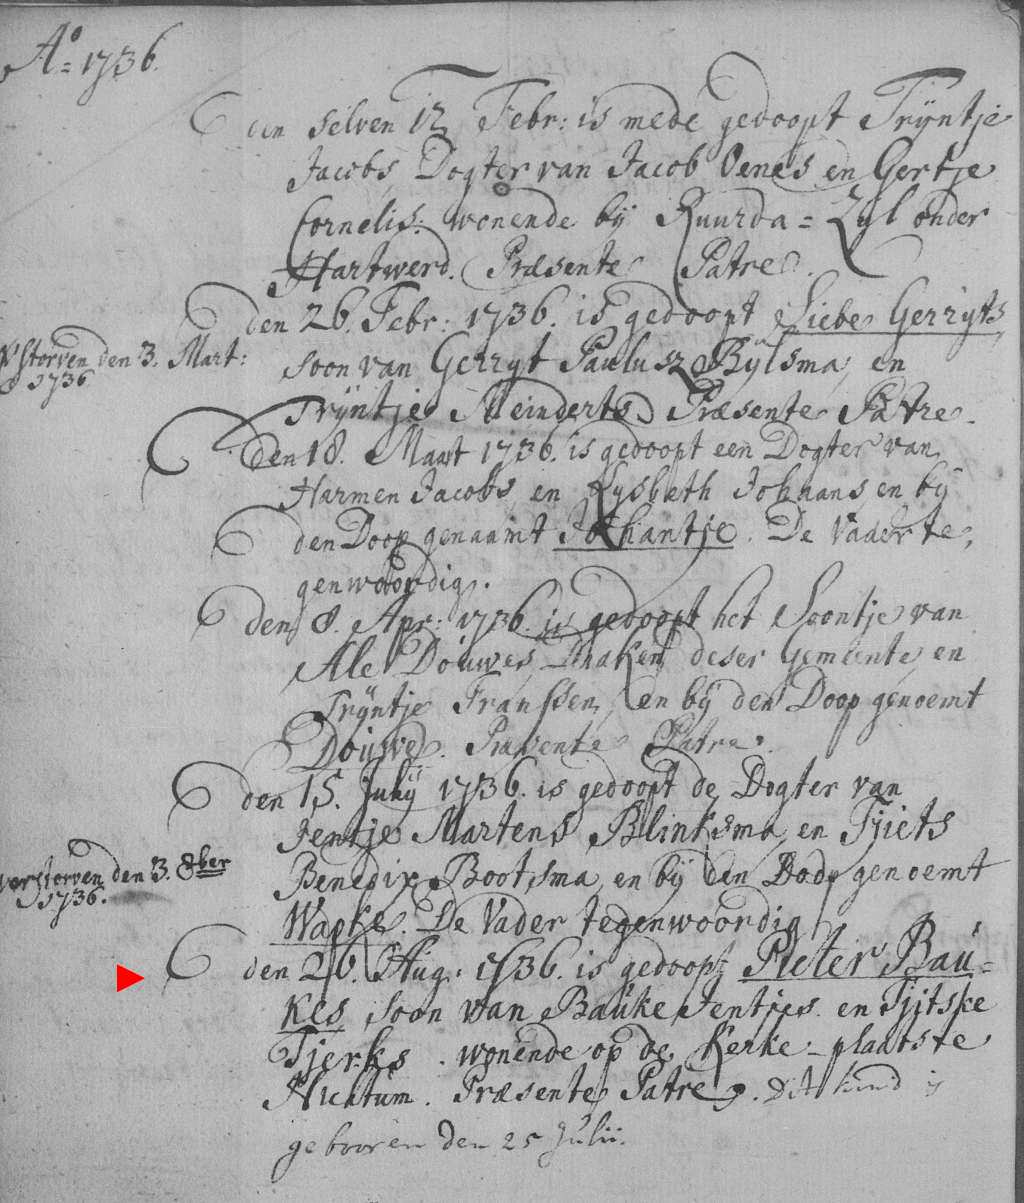 Aº= 1736.
den selven 12 Febr: is mede gedoopt Trÿntje
Jacobs, Dogter van Jacob Oenes en Gertje
Cornelis: wonende bÿ Ruurda=Zyl onder
Hartwerd. Præsente Patre.
den 26. Febr: 1736. is gedoopt Siebe Gerryts,
storven den 3. Mart:
1736
soon van Gerryt Paulusz Bÿlsma, en
Trÿntje Meinderts. Præsente Patre.
den 18. Maart 1736. is gedoopt een Dogter van
Harmen Jacobs en Lysbeth Johaans en bÿ
den Doop genaamt Johantje. De Vader te,
genwoordig.
den 8. Apr: 1736. is gedoopt het Soontje van
Ale Douwes, deser Gemeente en
Trÿntje Franssen, en bÿ den Doop genoemt
Douwe. Præsente Patre.
den 15. Julÿ 1736. is gedoopt de Dogter van
Jentje Martens Blinksma, en Tjiets
verstorven den 3. 8ber
1736.
Benedix Bootsma, en bÿ den Doop genoemt
Wapke. De Vader tegenwoordig.
den 26. Aug: 1736. is gedoopt Pieter Bau=
kes soon van Bauke Jentjes en Tjitske
Tjerks. wonende op de Kerke-plaatste
Hichtum. Præsente Patre. Dit kind is
gebooren den 25 Julii.